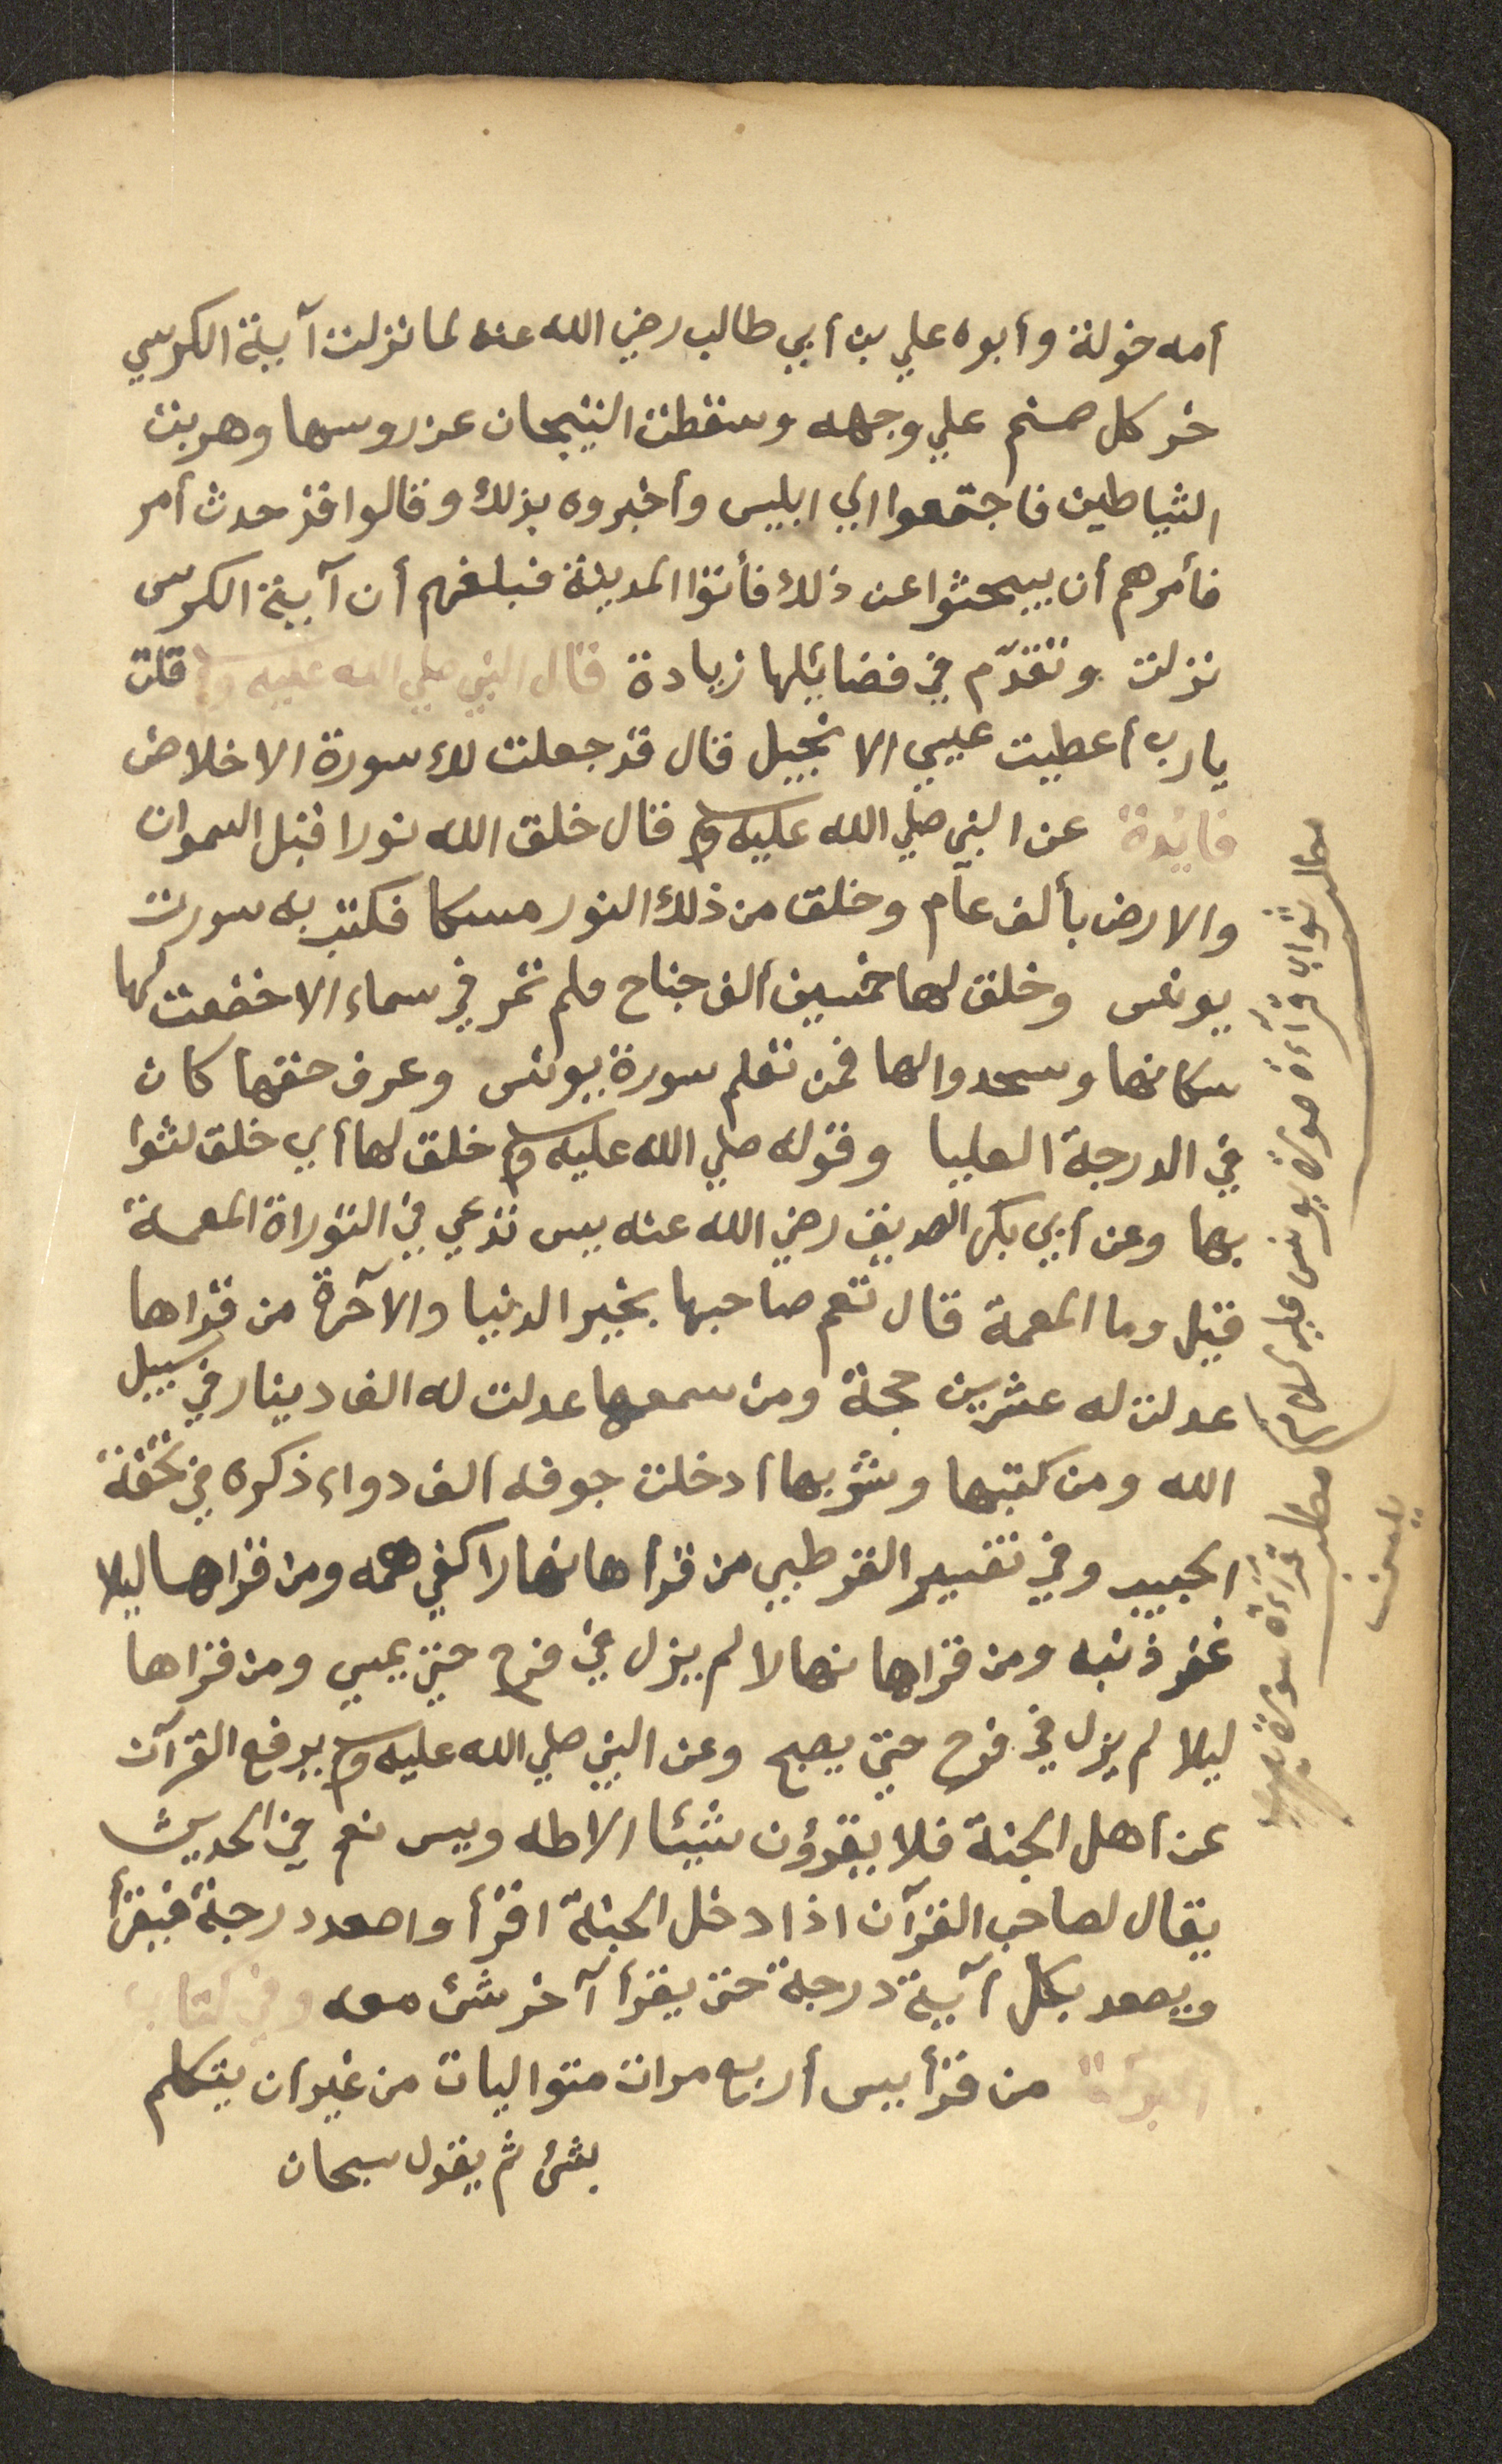 أمه خولة وأبوه علي بن أبي طالب رضي الله عنه لما نزلت آية الكرسي
خر كل صنم علي وجهه وسقطت التيجان عن روسها وهربت
الشياطين فاجتمعوا الي ابليس وأخبروه بذلك وقالوا قد حدث أمر
فأمرهم أن يبحثوا عن ذلك فأتوا المدينة فبلغهم أن آية الكرسى
نزلت وتقدّم في فضايلها زيادة قال النبي صلي الله عليه وسلم قلت
يارب أعطيت عيسي الانجيل قال قد جعلت لك سورة الاخلاص
فايدة عن النبي صلي الله عليه وسلم قال خلق الله نورا قبل السموات
والارض بألف عام وخلق من ذلك النور مسكا فكتب به سورت
يونس وخلق لها خمسين ألف جناح فلم تمر في سماء الا خضعت لها
سكانها وسجدوا لها فمن تعلم سورة يونس وعرف حقها كان
في الدرجة العليا وقوله صلي الله عليه وسلم خلق لها أي خلق لثوا
بها وعن أبي بكر الصديق رضي الله عنه يس تدعي في التوراة المعمة
قيل وما المعمة قال تعم صاحبها بخير الدنيا والآخرة من قراها
عدلت له عشرين حجة ومن سمعها عدلت له الف دينار في سبيل
الله ومن كتبها وشربها ادخلت جوفه الف دواء ذكره في تحفة
الحبيب وفي تفسير القرطبي من قرأها نهارا كفي همه ومن قراها ليلا
غفر ذنبه ومن قراها نهالا لم يزل في فرح حتي يمسي ومن قراها
ليلا لم يزل في فرح حتي يصبح وعن النبي صلي الله عليه وسلم يرفع القرآن
عن أهل الجنة فلا يقرؤن شيئا الا طه ويس نعم في الحديث
يقال لصاحب القرآن اذا دخل الجنة اقرأ واصعد درجة فيقرأ
ويصعد بكل آية درجة حتي يقرأ آخر شئ معه وفي كتاب
البركة من قرأ يس أربع مرات متواليات من غير ان يتكلم
بشئ ثم يقول سبحان
مطلب ثواب قرآءة سورة يونس عليه السلام
مطلب قراءة سورة يس